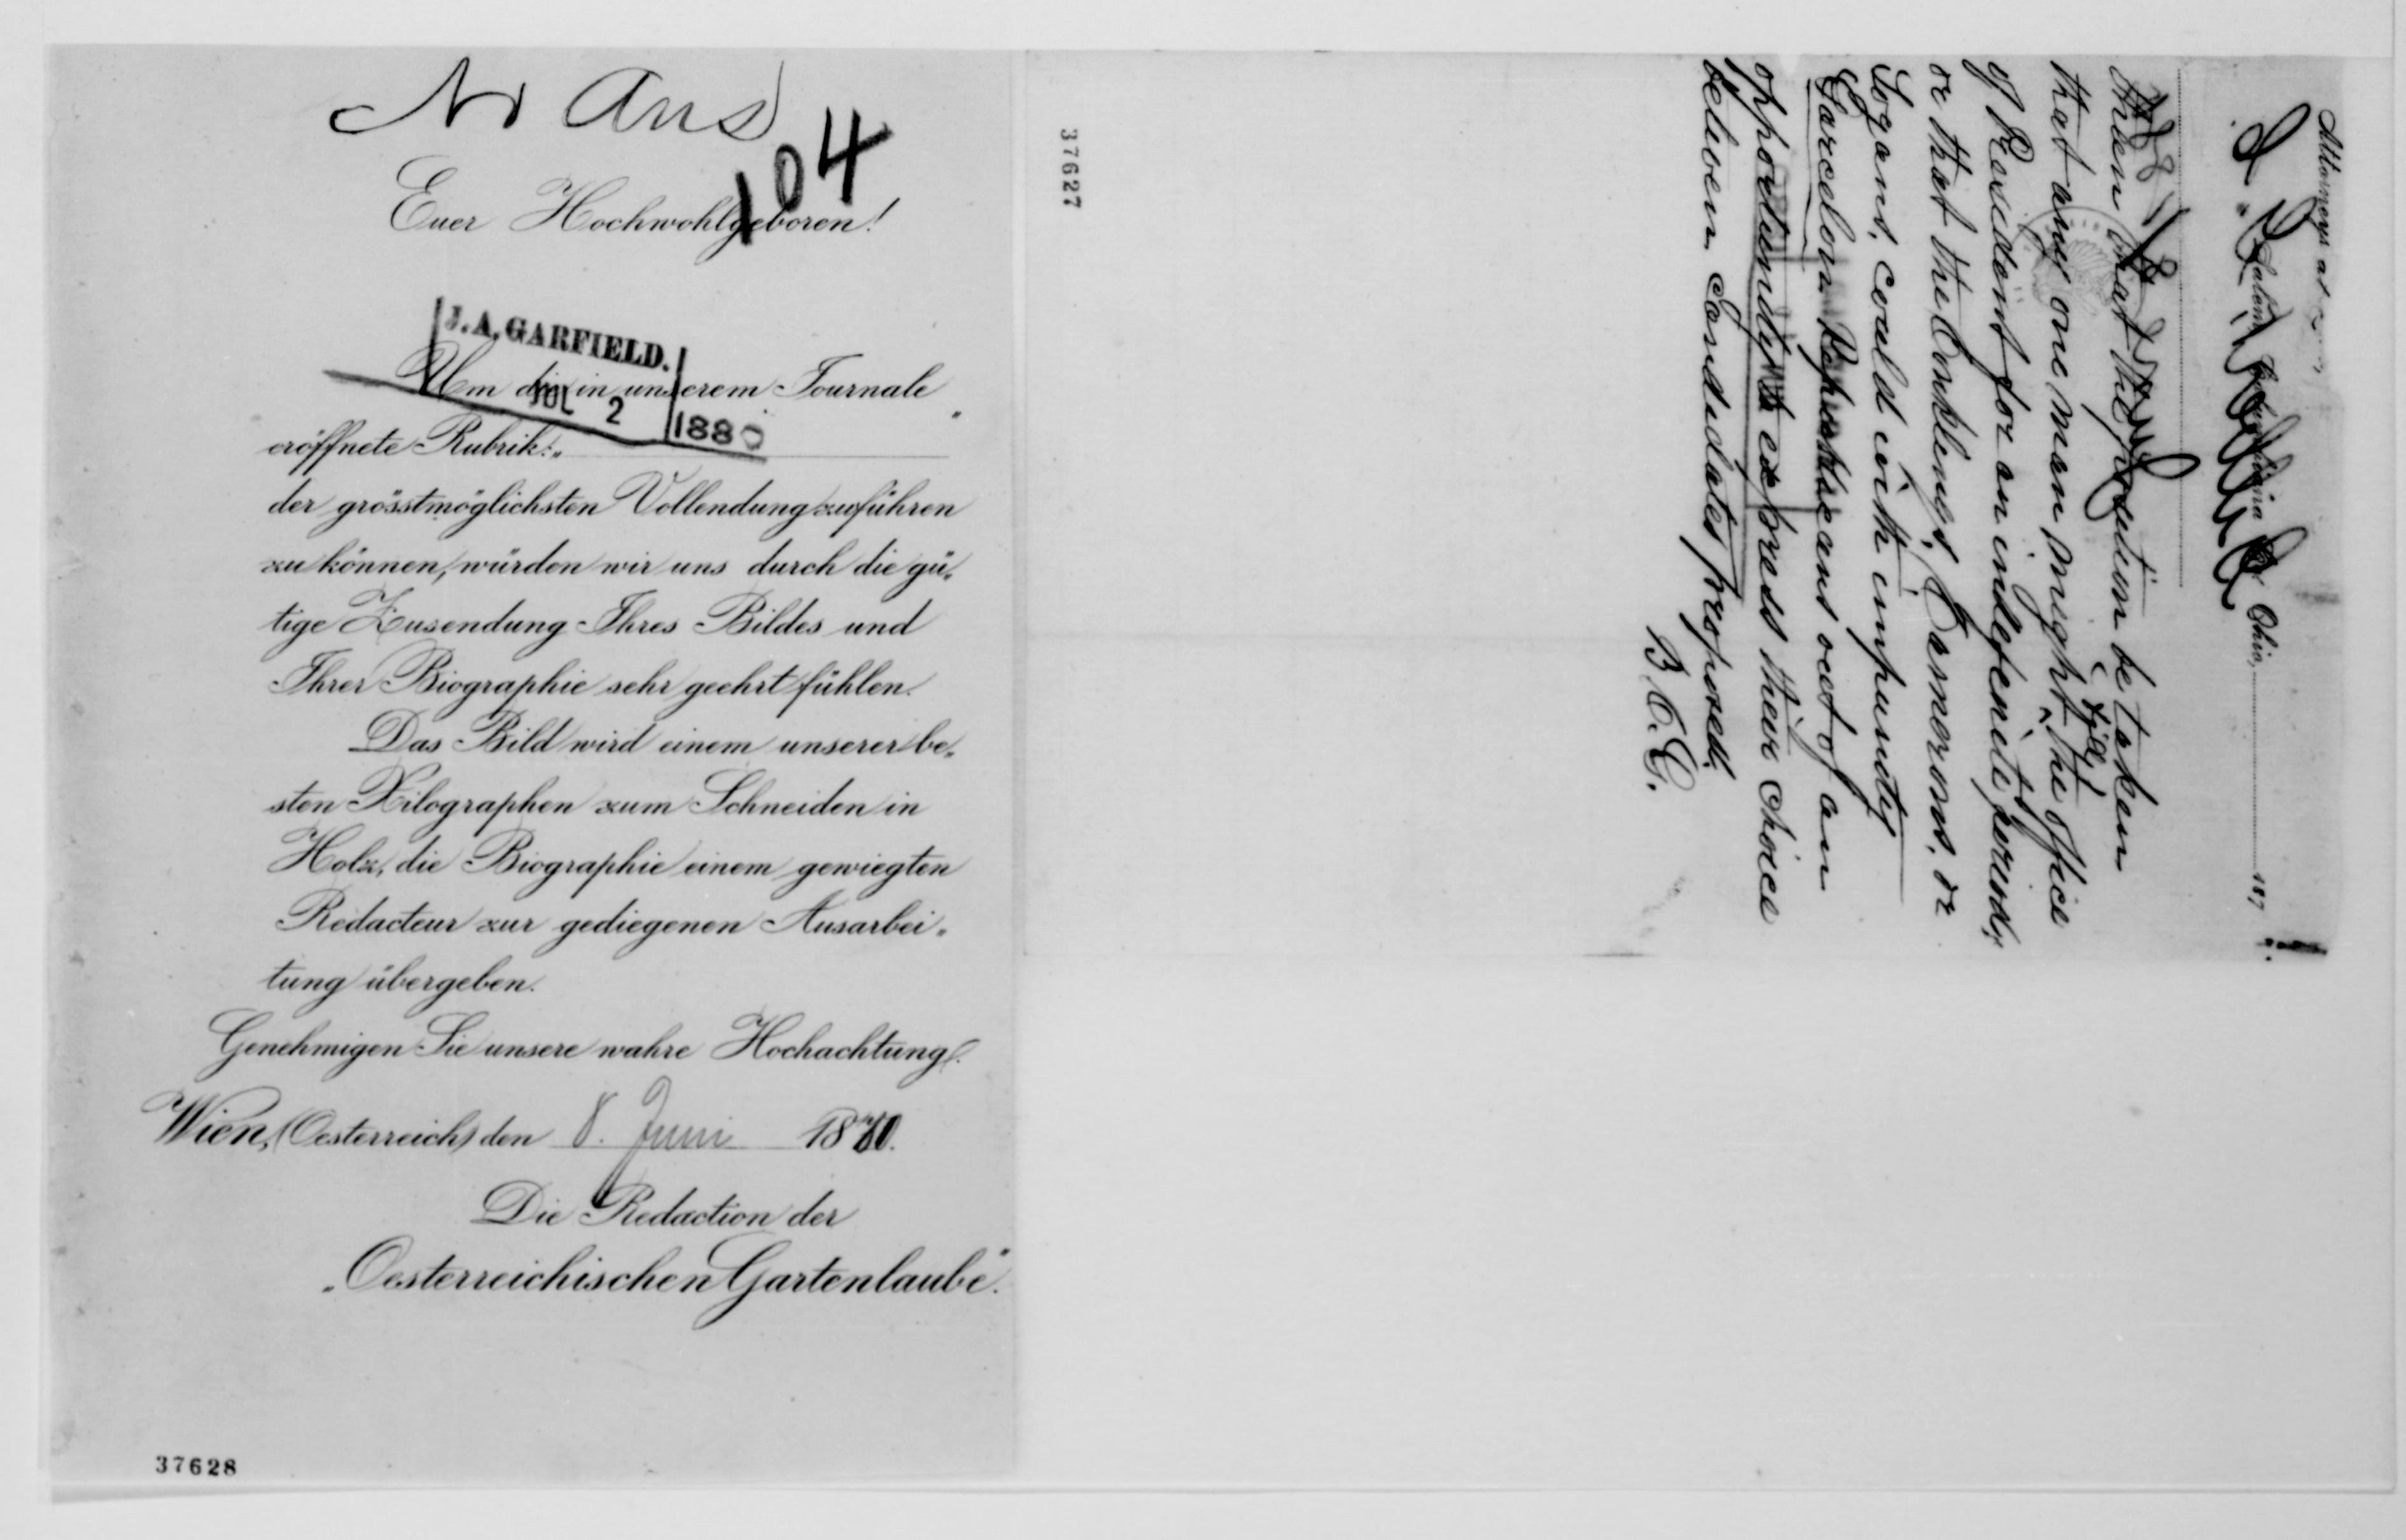 No Ans
104
Euer Hochwohlgeboren!
J. A. GARFIELD.
JUL 2 1880
Um die in unserem Journale
eröffnete Rubrik: „ "
der grösstmöglichsten Vollendung zuführen
zu können, würden wir uns durch die gü„
tige Zusendung Ihres Bildes und
Ihrer Biographie sehr geehrt fühlen.
Das Bild wird einem unserer be„
sten Xilographen zum Schneiden in
Holz, die Biographie einem gewiegten
Redacteur zur gediegenen Ausarbei„
tung übergeben.
Genehmigen Sie unsere wahre Hochachtung.
Wien, (Oesterreich) den 8. Juni 1880.
Die Redaction der
„Oesterreichischen Gartenlaube".
37628
37627
Attorneys at
Salem, Columbiana Co. Ohio, 187
be taken
that any one man might (fill) the office
of President for an indefinite period;
or that the Conklings, Camerons, or
Logans, could with impunity
Garcelon Republicans out of an
opportunity to express their choice
between Candidates proposed.
B. C. C.